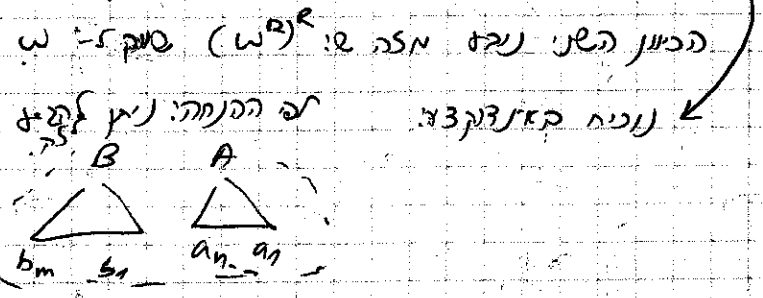 הכיוון השני נובע מזה ש: (ω^R)^R שווה ל- ω
נוכיח באינדוקציה. לפי ההנחה: ניתן להגיע
לה.
B A
b_m b_1 a_n a_1